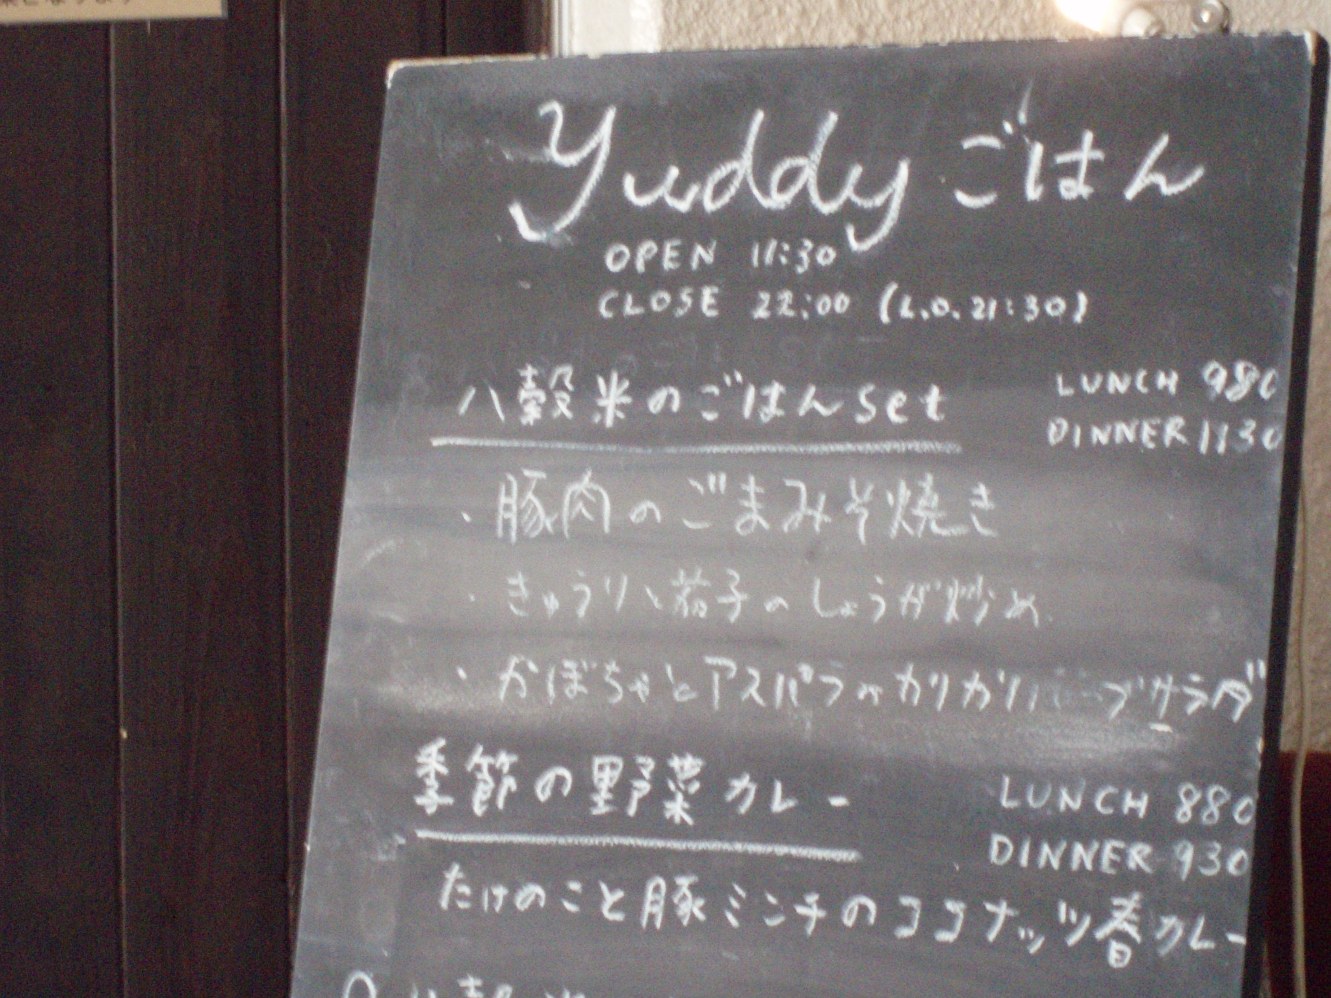 Yuddy ごはん
OPEN 11:30
CLOSE 22:00 (L.O. 21:30)
八穀米のごはんset
LUNCH 980
DINNER 1130
・豚肉のごまみそ焼き
・きゅうりと茄子のしょうが炒め
・かぼちゃとアスパラのカリカリハーブサラダ
季節の野菜カレー
LUNCH 880
DINNER 930
たけのこと豚ミンチのココナッツ春カレー